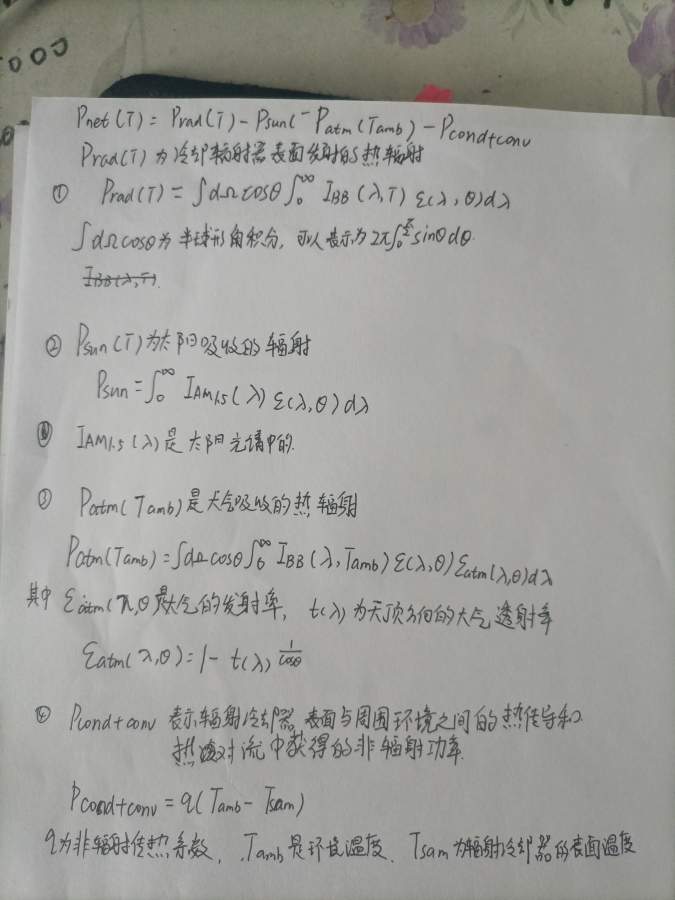 Pnet(T) = Prad(T) - Psun(- Patm(Tamb) - Pcond+conv
Prad(T)为冷却辐射器表面发射的热辐射
① Prad(T) = ∫dΩcosθ∫₀^∞ I_BB(λ,T) ε(λ,θ)dλ
∫dΩcosθ为半球形角积分,可以表示为2π∫₀^{π/2}sinθdθ.
② Psun(T)为太阳吸收的辐射
Psun=∫₀^∞ I_AM1.5(λ) ε(λ,θ)dλ
I_AM1.5(λ)是太阳光谱中的.
③ Patm(Tamb)是大气吸收的热辐射
Patm(Tamb)=∫dΩcosθ∫₀^∞ I_BB(λ,Tamb)ε(λ,θ)ε_atm(λ,θ)dλ
其中ε_atm(λ,θ是大气的发射率, t(λ)为天顶方向的大气透射率
ε_atm(λ,θ)=1-t(λ)^{1/cosθ}
④ Pcond+conv 表示辐射冷却器表面与周围环境之间的热传导和
热对流中获得的非辐射功率.
Pcond+conv=q(Tamb-Tsam)
q为非辐射传热系数, Tamb是环境温度、Tsam为辐射冷却器的表面温度